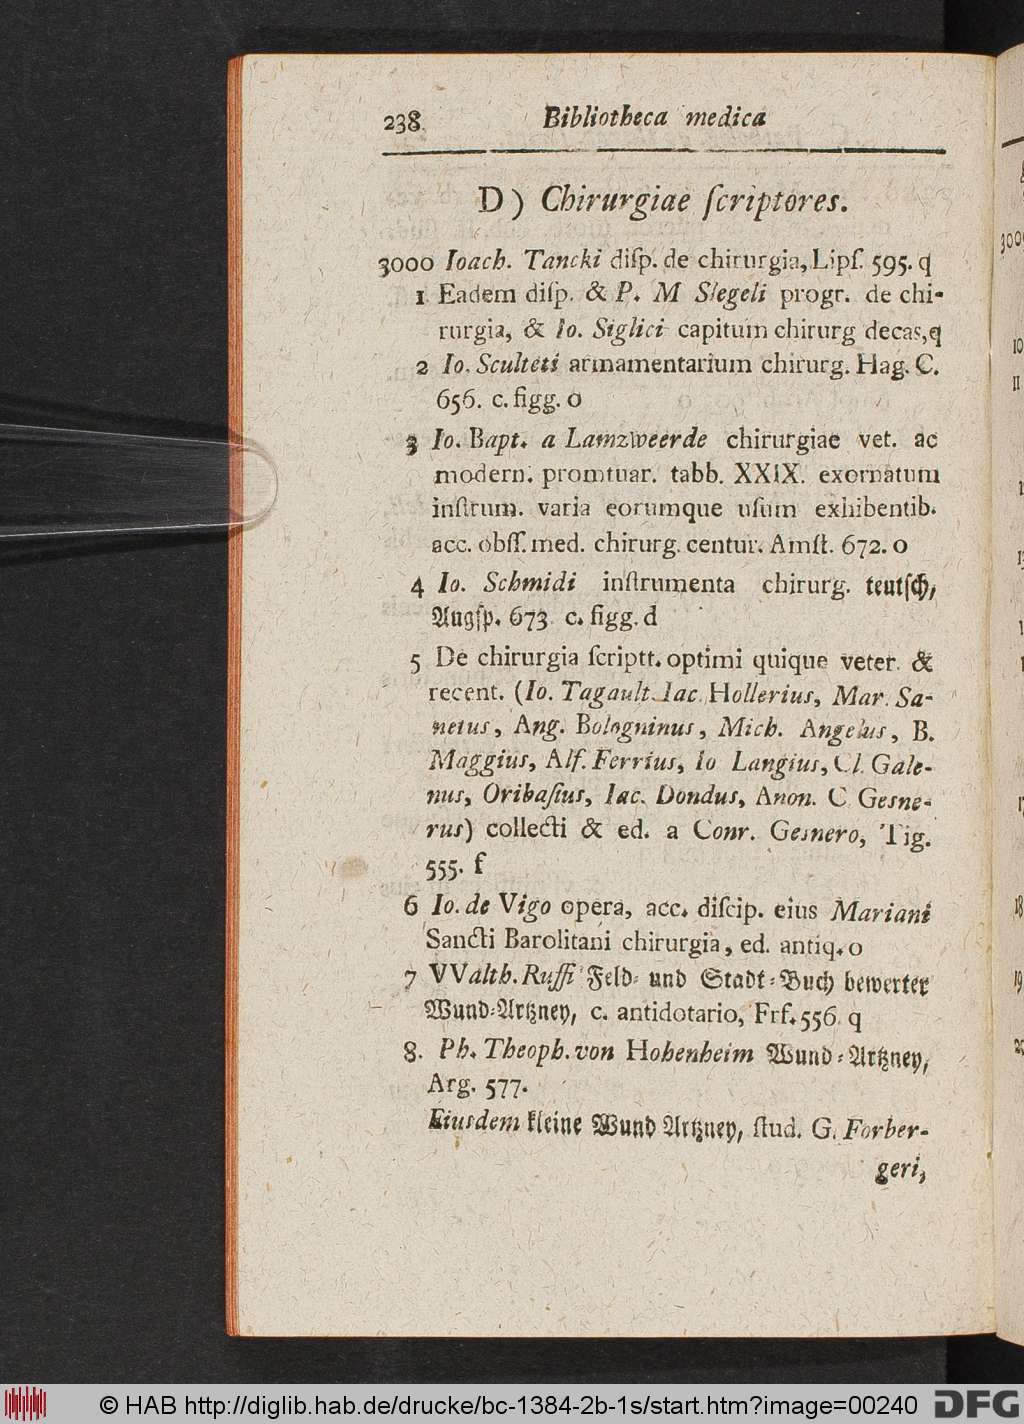 238 Bibliotheca medica
D) Chirurgiae ſcriptores.
3000 Ioach. Tancki diſp. de chirurgia, Lipſ. 595. q
1 Eadem diſp. & P. M Slegeli progr. de chi-
rurgia, & Io. Siglici capitum chirurg decas, q
2 Io. Sculteti armamentarium chirurg. Hag. C.
656. c. figg. o
3 Io. Bapt. a Lamzweerde chirurgiae vet. ac
modern. promtuar. tabb. XXIX. exornatum
inſtrum. varia eorumque uſum exhibentib.
acc. obſſ. med. chirurg. centur. Amſt. 672. o
4 Io. Schmidi inſtrumenta chirurg. teutſch,
Augſp. 673 c. figg. d
5 De chirurgia ſcriptt. optimi quique veter. &
recent. (Io. Tagault. Iac. Hollerius, Mar. Sa-
netus, Ang. Bologninus, Mich. Angelus, B.
Maggius, Alf. Ferrius, Io Langius, Cl. Gale-
nus, Oribaſius, Iac. Dondus, Anon. C Gesne-
rus) collecti & ed. a Conr. Gesnero, Tig.
555. f
6 Io. de Vigo opera, acc. diſcip. eius Mariani
Sancti Barolitani chirurgia, ed. antiq. o
7 VValth. Ruffi Feld- und Stadt-Buch bewerter
Wund-Artzney, c. antidotario, Frf. 556 q
8. Ph. Theoph. von Hohenheim Wund-Artzney,
Arg. 577.
Eiusdem kleine Wund Artzney, ſtud. G. Forber-
geri,
3009
10
11
© HAB http://diglib.hab.de/drucke/bc-1384-2b-1s/start.htm?image=00240
DFG